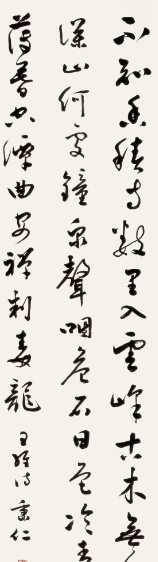 不知香積寺數里入雲峰古木無
深山何處鐘泉聲咽危石日色冷青
薄暮空潭曲安禪制毒龍 王維詩